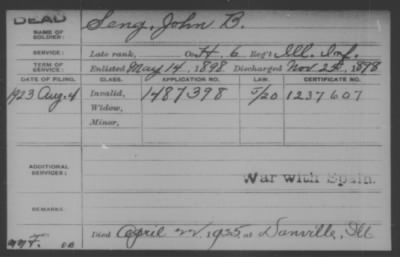 DEAD
NAME OF SOLDIER: Seng, John B.
SERVICE: Late rank, Co. H. 6 Reg't Ill. Inf.
TERM OF SERVICE: Enlisted May 14, 1898 Discharged Nov 25, 1898
DATE OF FILING. CLASS. APPLICATION NO. LAW. CERTIFICATE NO.
1923 Aug. 4 Invalid, 1487398 5/20 1237607
Widow,
Minor,
ADDITIONAL SERVICES:
War with Spain.
REMARKS:
Died April 22, 1925 at Danville, Ill